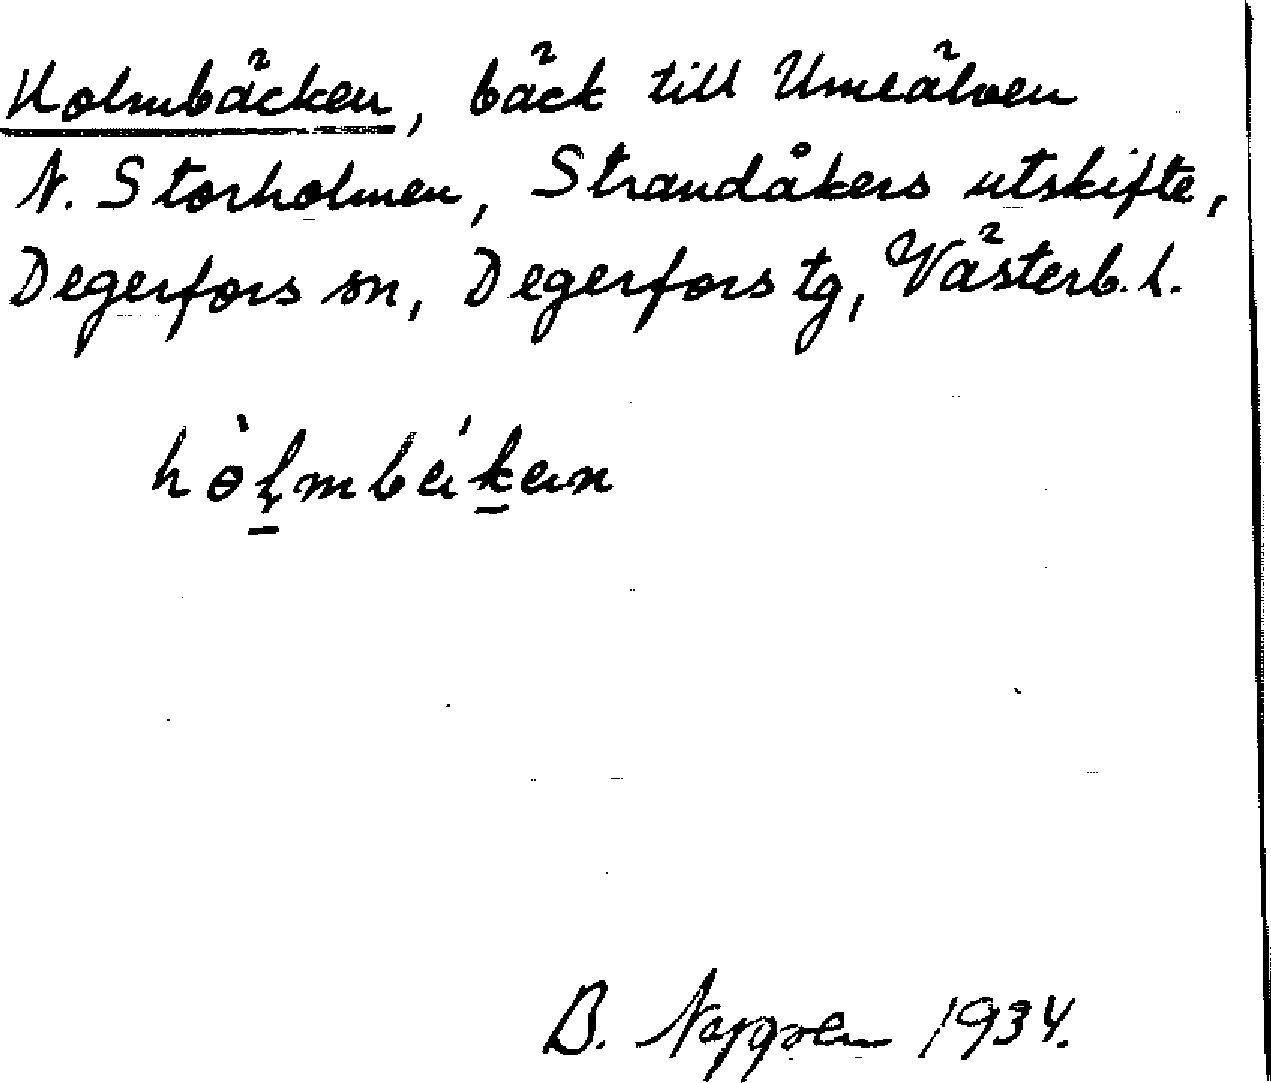 Holmbäcken, bäck till Umeälven
N. Storholmen, Strandåkers utskifte,
Degerfors sn, Degerfors tg, Västerb. l.
B. 1934.